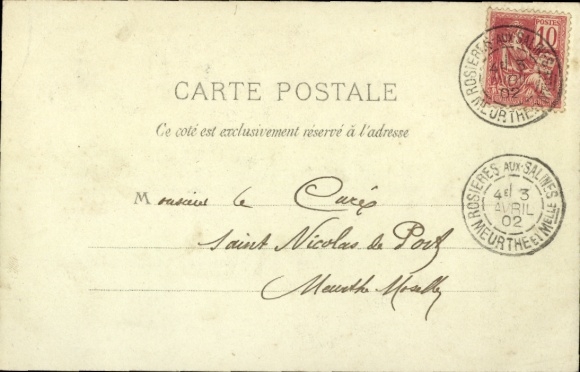 POSTES
10
ROSIERES AUX SALINES
02
MEURTHE ET
CARTE POSTALE
Ce coté est exclusivement réservé à l'adresse
Monsieur le Curé
Saint Nicolas de Port
Meurthe Moselle
ROSIERES AUX-SALINES
4E 3
AVRIL
02
MEURTHE ET MELLE